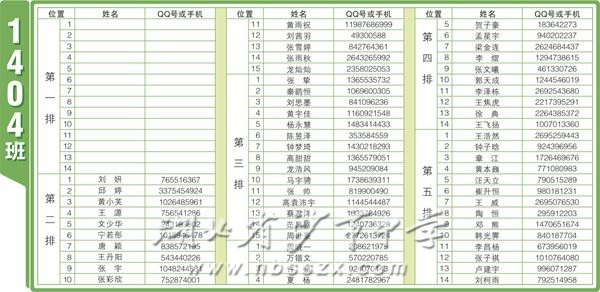 1404班
位置 姓名 QQ号或手机
第一排
1
2
3
4
5
6
7
8
9
10
11
12
13
14
第二排
1 刘妍 765516367
2 邱婷 3375454924
3 黄小芙 1026485961
4 王源 756541286
5 文少华
6 宁若彤
7 唐颖 838572195
8 王丹阳 543440226
9 张宇
10 张彩欣 752874001
位置 姓名 QQ号或手机
11 黄雨祝 11987686999
12 刘茜羽 49300588
13 张雪婷 842764361
14 张雨秋 2643265992
15 龙灿灿 2358025053
第三排
1 张挚 1365535732
2 秦鹤恒 1069600305
3 刘思墨 841096236
4 黄宇佳 1160921548
5 杨永慧 1483414433
6 陈昱泽 353584559
7 钟梦琦 1430218293
8 高甜甜 1365579051
9 龙浩风 945209084
10 马宇骋 1738639311
11 张帅 819900490
12 高袁沛宇 1144544487
13 蔡君洋
14
15 周世亚
第四排
1
2 万锴文 570220785
3
4 夏杨 2481782967
位置 姓名 QQ号或手机
5 贺子豪 183642273
6 孟星宇 940202237
7 梁金连 2624684437
8 李熠 1294738615
9 张文曦 461330726
10 郭天成 1244546019
11 李泽栋 2692543680
12 王焦虎 2217395291
13 徐典 2264385372
14 王飞扬 1007013360
第五排
1 王浩然 2695259443
2 钟子晗 924396956
3 章江 1726469676
4 黄本巍 771080983
5 汪天立 790515289
6 崔升恒 980181231
7 王威 2695076530
8 陶恒 295912203
9 邓熊 1476501674
10 韩光霁 840187704
11 李昌杨 673956019
12 张子祺 1010764080
13 卢建宇 996071287
14 刘柯雨 792514958
www.nbsszx.com